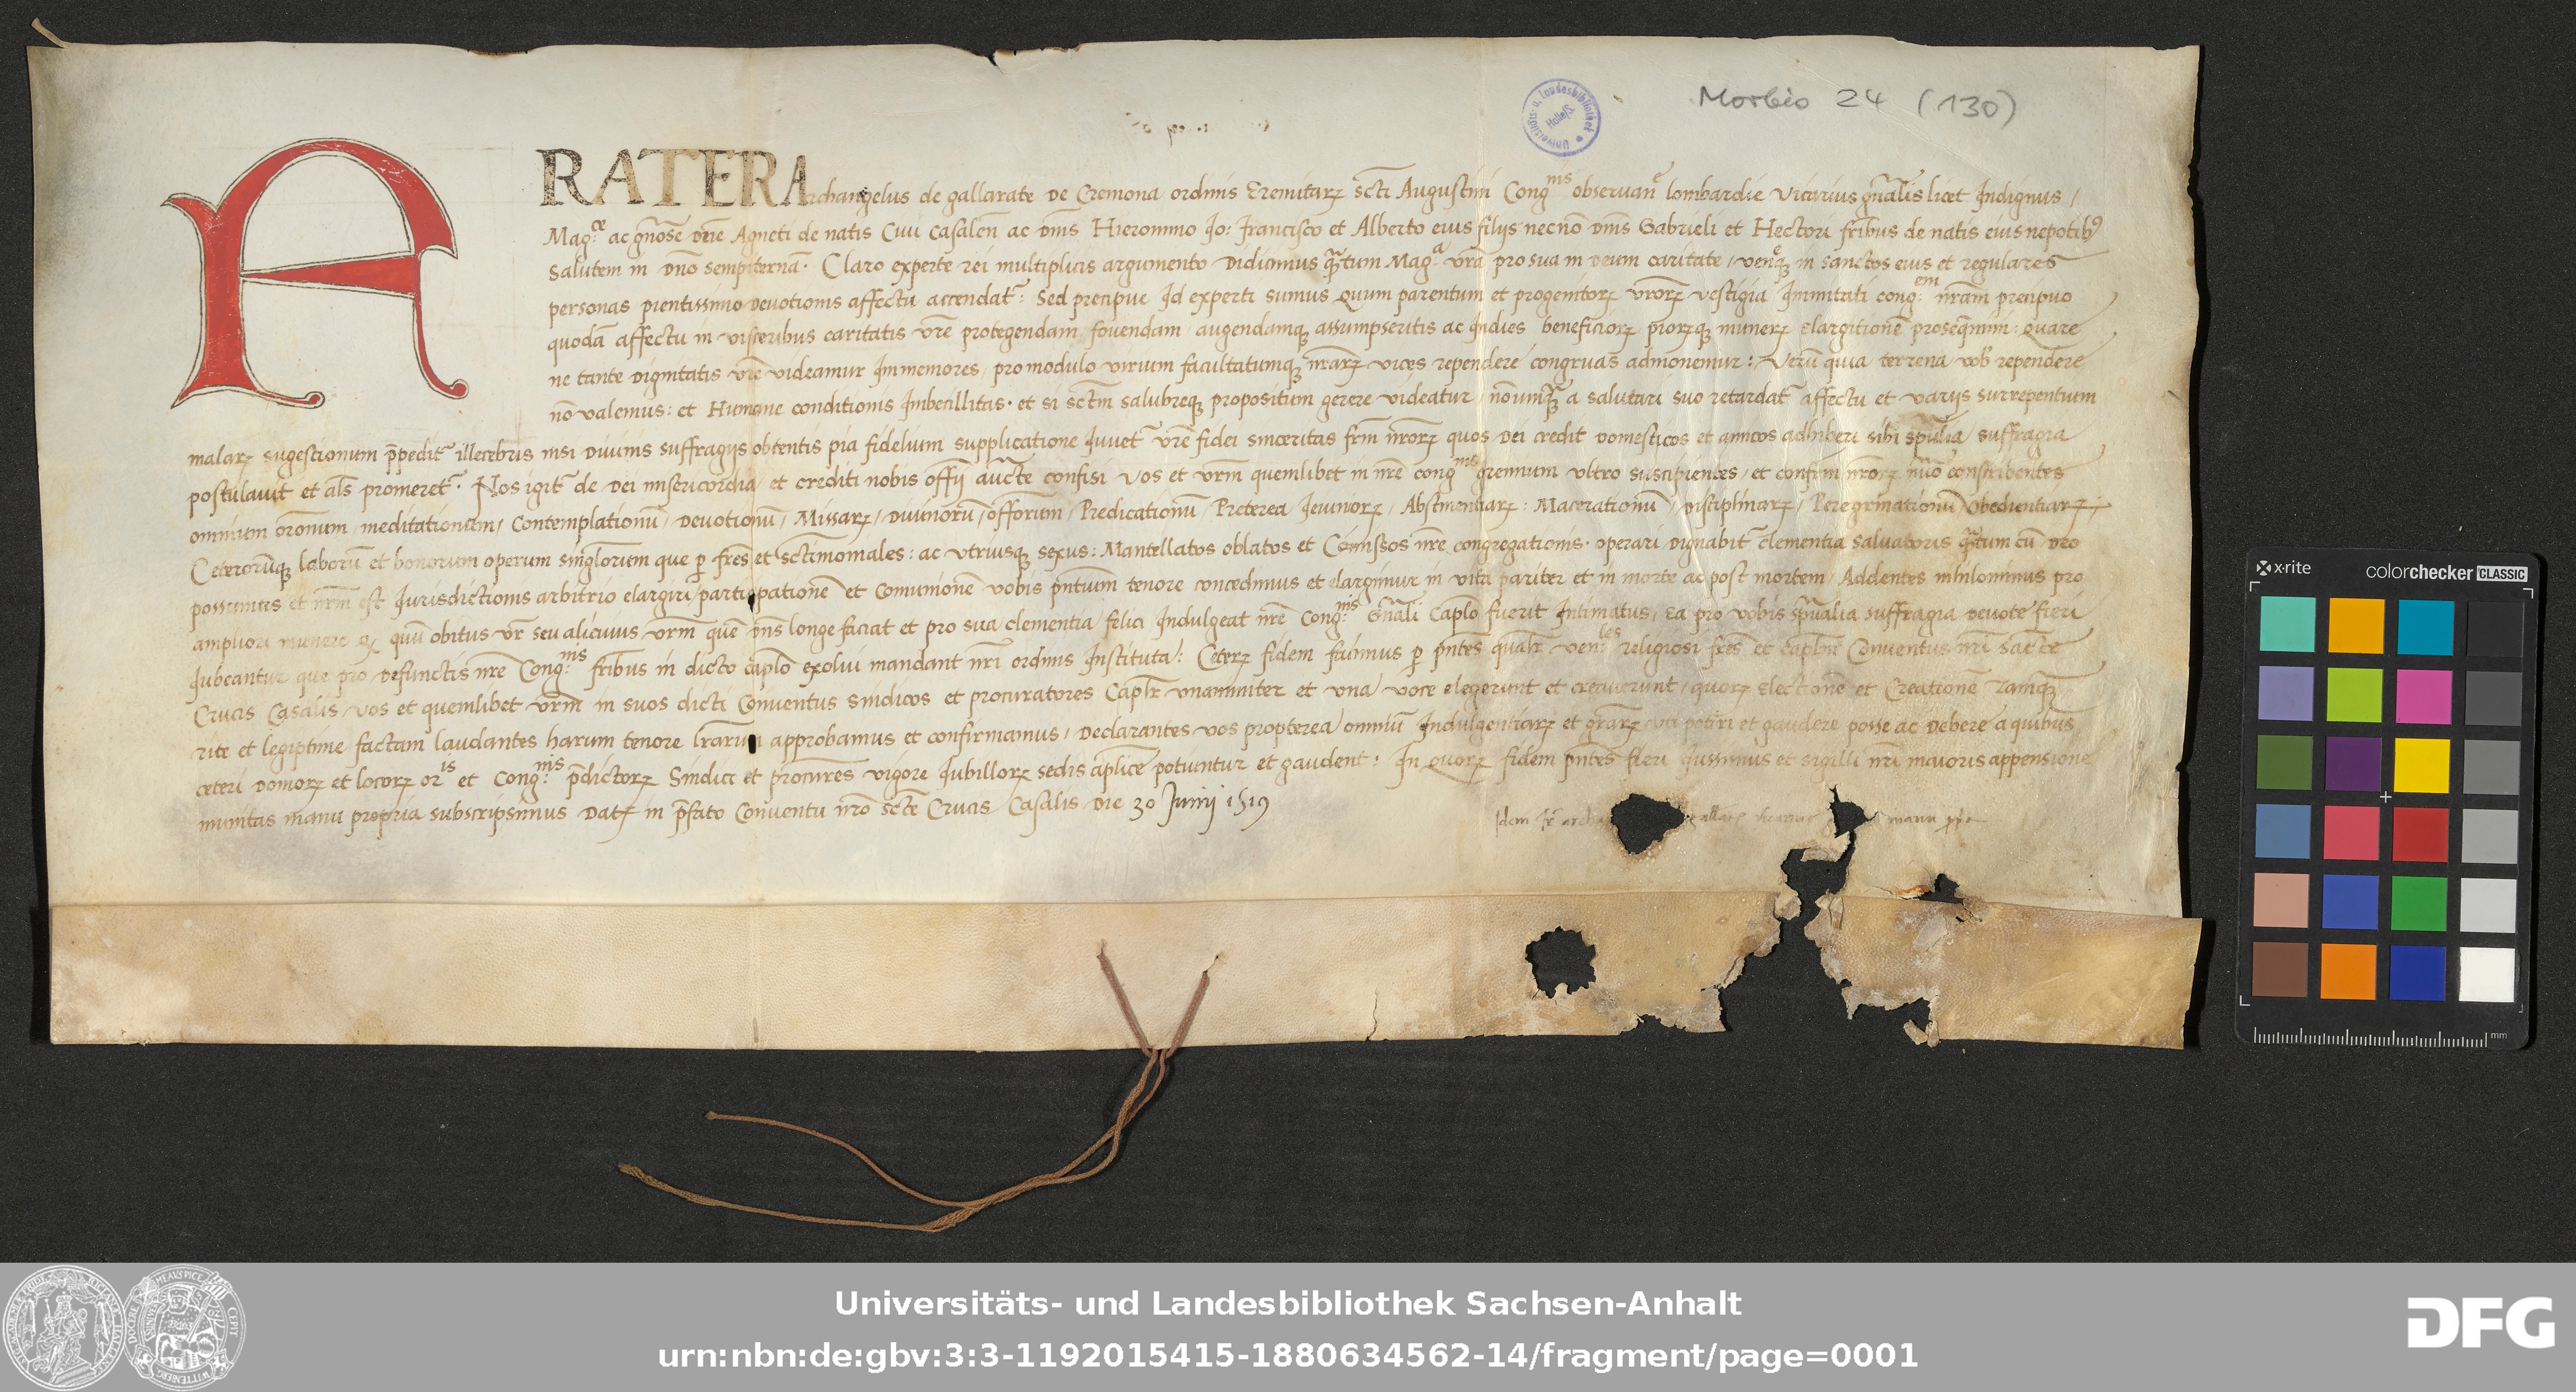 Morbio 24 (130)
Universitäts- u. Landesbibliothek Halle/S.
FRATER Archangelus de gallarate de Cremona ordinis Eremitarꝝ scti Augustini Congnis observane lombardie Vicarius gnalis licet Indignus /
Mag.ce ac gnose dne Agneti de natis Civi casalen ac dnis Hieronimo Jo: francisco et Alberto eius filijs necnō dnis Gabrieli et Hectori fribus de natis eius nepotibꝰ
salutem in dno sempiternā. Claro experte rei multiplicis argumento didicimus qtum Mag.a vra pro sua in deum caritate / in sanctos eius et regulares
personas pientissimo devotionis affectu accendat: Sed precipue Id experti sumus quum parentum et progenitorꝝ vrorꝝ vestigia Immitati cong.em nram precipuo
quodā affectu in visceribus caritatis vre protegendam fovendam augendamqꝫ assumpseritis ac Indies beneficiorꝝ piorꝝqꝫ munerꝝ elargitione : Quare
ne tante dignitatis vre videamur Immemores, pro modulo virium facultatumqꝫ nrarꝝ vices rependere congruas admonemur: Verū quia terrena vob rependere
nō valemus: et Humane conditionis Imbecillitas. et si sctm salubreqꝫ propositum gerere videatur nōumqꝫ a salutari suo retardat affectu et varijs surrepentium
malarꝝ sugestionum ppedit illecebris nisi divinis suffragijs obtentis pia fidelium supplicatione Iuvet vre fidei sinceritas frm nrorꝝ quos dei credit domesticos et amicos adhiberi sibi spulia suffragia
postulavit et als promeret. Nos igit de dei misericordia et crediti nobis offij aucte confisi vos et vrm quemlibet in nre congnis gremium ultro suscipientes, et confrm nrorꝝ nūo conscribentes
omnium oronum meditationum, Contemplationū, devotionū, Missarꝝ, divinorū offorum, Predicationū, Preterea Ieiuniorꝝ, Abstinentiarꝝ: Macerationū, disciplinarꝝ, Peregrinationū, obedientiarꝝ,
Ceterorūqꝫ laborū et bonorum operum singlorum que p fres et sctimoniales: ac utriusqꝫ sexus: Mantellatos oblatos et Comissos nre congregationis. operari dignabit clementia salvatoris qtum cū deo
possumus et nrm est Iurisdictionis arbitrio elargiri, participationē et comunionē vobis pntium tenore concedimus et elargimur in vita pariter et in morte ac post mortem, Addentes nihilominus pro
ampliori munere quū obitus vr seu alicuius vrm quē dns longe faciat et pro sua clementia felici Indulgeat nre Cong.nis Gnali caplo fuerit Intimatus, ea pro vobis spualia suffragia devote fieri
Iubeantur que pro defunctis nre Cong.nis fribus in dicto caplo exolui mandant nri ordinis Instituta: Ceterꝝ fidem facimus p pntes qualr ven.les religiosi fres et caplum Conventus nri sacte
Crucis Casalis, vos et quemlibet vrm in suos dicti Conventus sindicos et procuratores Caplr unanimiter et una voce elegerunt et creaverunt, quorꝝ Electionē et Creationē tamqꝫ
rite et legiptime factam laudantes harum tenore lrarum approbamus et confirmamus, declarantes vos propterea omniū Indulgentiarꝝ et grarꝝ uti potiri et gaudere posse ac debere a quibus
ceteri domorꝝ et locorꝝ oris et Cong.nis pdictorꝝ Sindici et procures vigore Iubillorꝝ sedis aplice potiuntur et gaudent: In quorꝝ fidem pntes fieri Iussimus et sigilli nri maioris appensione
munitas manu propria subscripsimus Datꝝ in pfato Conventu nro scte Crucis Casalis die 30 Junij 1519
Idem fr archa gallar manu ppa
x-rite
colorchecker CLASSIC
mm
Universitäts- und Landesbibliothek Sachsen-Anhalt
urn:nbn:de:gbv:3:3-1192015415-1880634562-14/fragment/page=0001
DFG